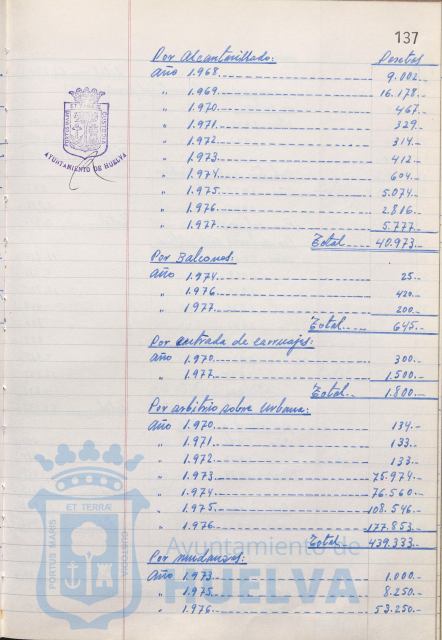 137
Por Alcantarillado: Pesetas
Año 1.968 9.002.-
" 1.969 16.178.-
" 1.970 467.-
" 1.971 329.-
" 1.972 314.-
" 1.973 412.-
" 1.974 604.-
" 1.975 5.074.-
" 1.976 2.816.-
" 1.977 5.777.-
Total 40.973.-
Por Balcones:
Año 1.974 25.-
" 1.976 420.-
" 1977 200.-
Total 645.-
Por entrada de carruajes:
Año 1.970 300.-
" 1.977 1.500.-
Total 1.800.-
Por arbitrio sobre Urbana:
Año 1.970 134.-
" 1.971 133.-
" 1.972 133.-
" 1.973 75.974.-
" 1.974 76.560.-
" 1.975 108.546.-
" 1.976 177.853.-
Total 439.333.-
Por mudanzas:
Año 1.973 1.000.-
" 1.975 8.250.-
" 1.976 53.250.-
PORTUS MARIS ET TERRAE CUSTODIA
AYUNTAMIENTO DE HUELVA
PORTUS MARIS ET TERRAE CUSTODIA
Ayuntamiento de
HUELVA